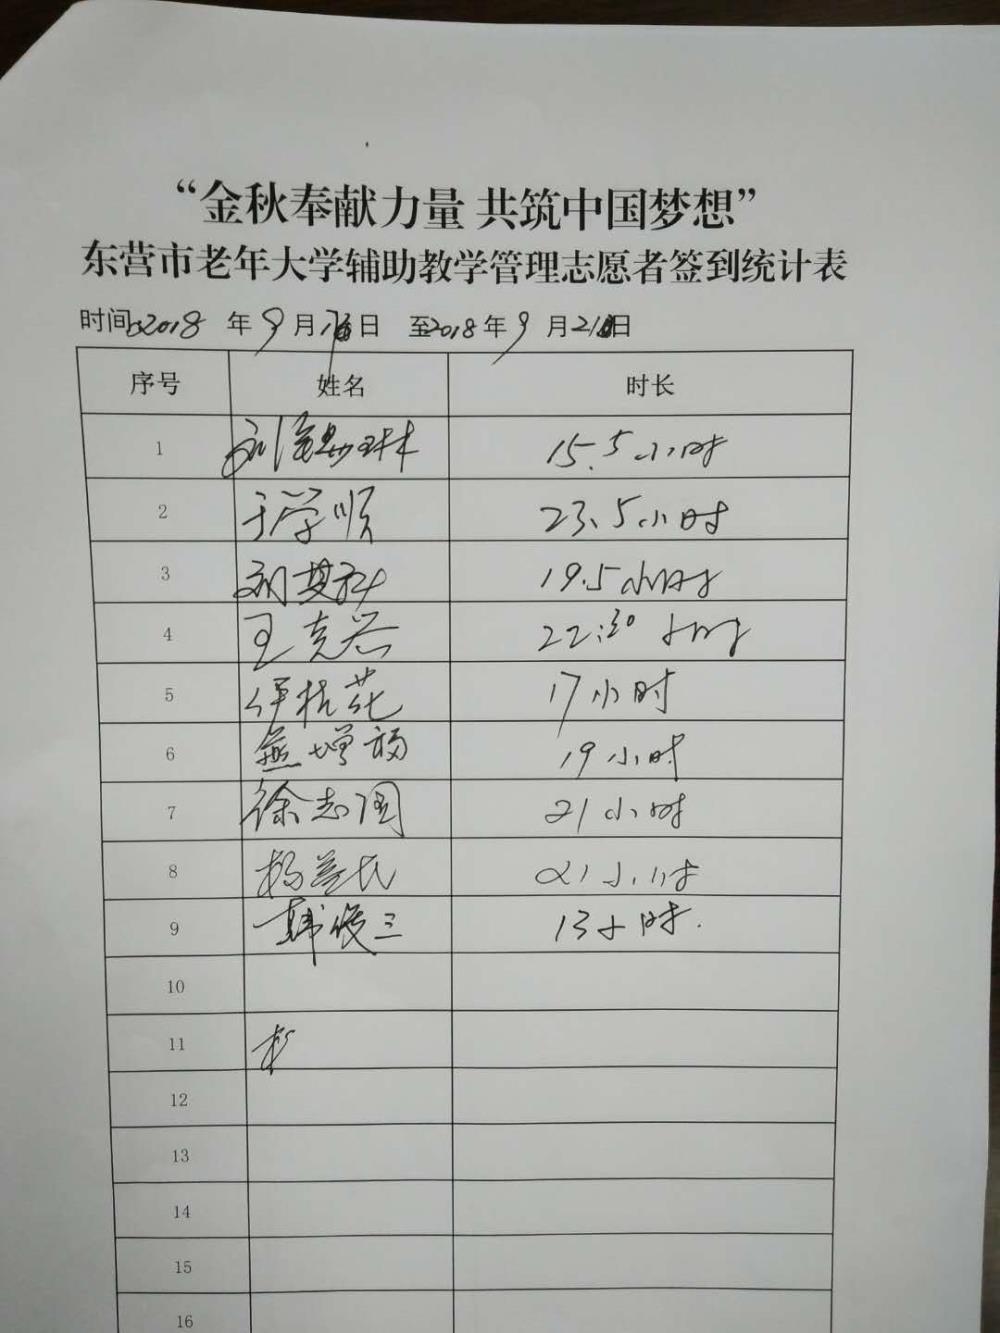 “金秋奉献力量 共筑中国梦想”
东营市老年大学辅助教学管理志愿者签到统计表
时间:2018 年 9 月 日 至2018年 9 月 21日
序号 姓名 时长
1 15.5小时
2 于学顺 23.5小时
3 刘其科 19.5小时
4 王克 22:30 小时
5 伊桂花 17小时
6 燕增福 19小时
7 徐志国 21小时
8 杨益民 21小时
9 韩俊三 13小时.
10
11
12
13
14
15
16